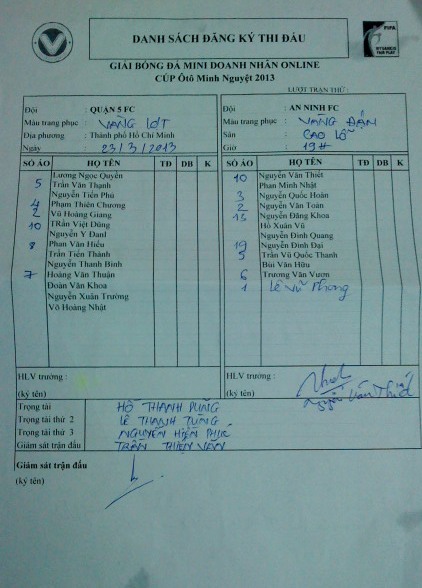 DANH SÁCH ĐĂNG KÝ THI ĐẤU
FIFA
MY GAME IS FAIR PLAY
GIẢI BÓNG ĐÁ MINI DOANH NHÂN ONLINE
CÚP Ôtô Minh Nguyệt 2013
LƯỢT TRẬN THỨ :
Đội : QUẬN 5 FC
Màu trang phục : VÀNG LỢT
Địa phương : Thành phố Hồ Chí Minh
Ngày : 23/3/2013
Đội : AN NINH FC
Màu trang phục : VÀNG ĐẬM
Sân : CAO LỖ
Giờ : 19H
SỐ ÁO HỌ TÊN TĐ DB K
Lương Ngọc Quyền
5 Trần Văn Thạnh
Nguyễn Tiến Phú
4 Phạm Thiên Chương
2 Vũ Hoàng Giang
10 TRần Việt Dũng
Nguyễn Y Danl
8 Phan Văn Hiếu
Trần Tiến Thành
Nguyễn Thanh Bình
7 Hoàng Văn Thuận
Đoàn Văn Khoa
Nguyễn Xuân Trường
Võ Hoàng Nhật
SỐ ÁO HỌ TÊN TĐ DB K
10 Nguyễn Văn Thiết
Phan Minh Nhật
3 Nguyễn Quốc Hoàn
2 Nguyễn Văn Toàn
15 Nguyễn Đăng Khoa
Hồ Xuân Vũ
Nguyễn Đình Quang
19 Nguyễn Đình Đại
5 Trần Vũ Quốc Thanh
Bùi Văn Hữu
6 Trương Văn Vượn
1 Lê Vũ Phong
HLV trưởng :
(ký tên)
HLV trưởng :
(ký tên)
Nguyễn Văn Thiết
Trọng tài HỒ THANH DŨNG
Trọng tài thứ 2 LÊ THANH TÙNG
Trọng tài thứ 3 NGUYỄN HIỀN PHÚC
Giám sát trận đấu TRẦN THIỆN VĂN
Giám sát trận đấu
(ký tên)